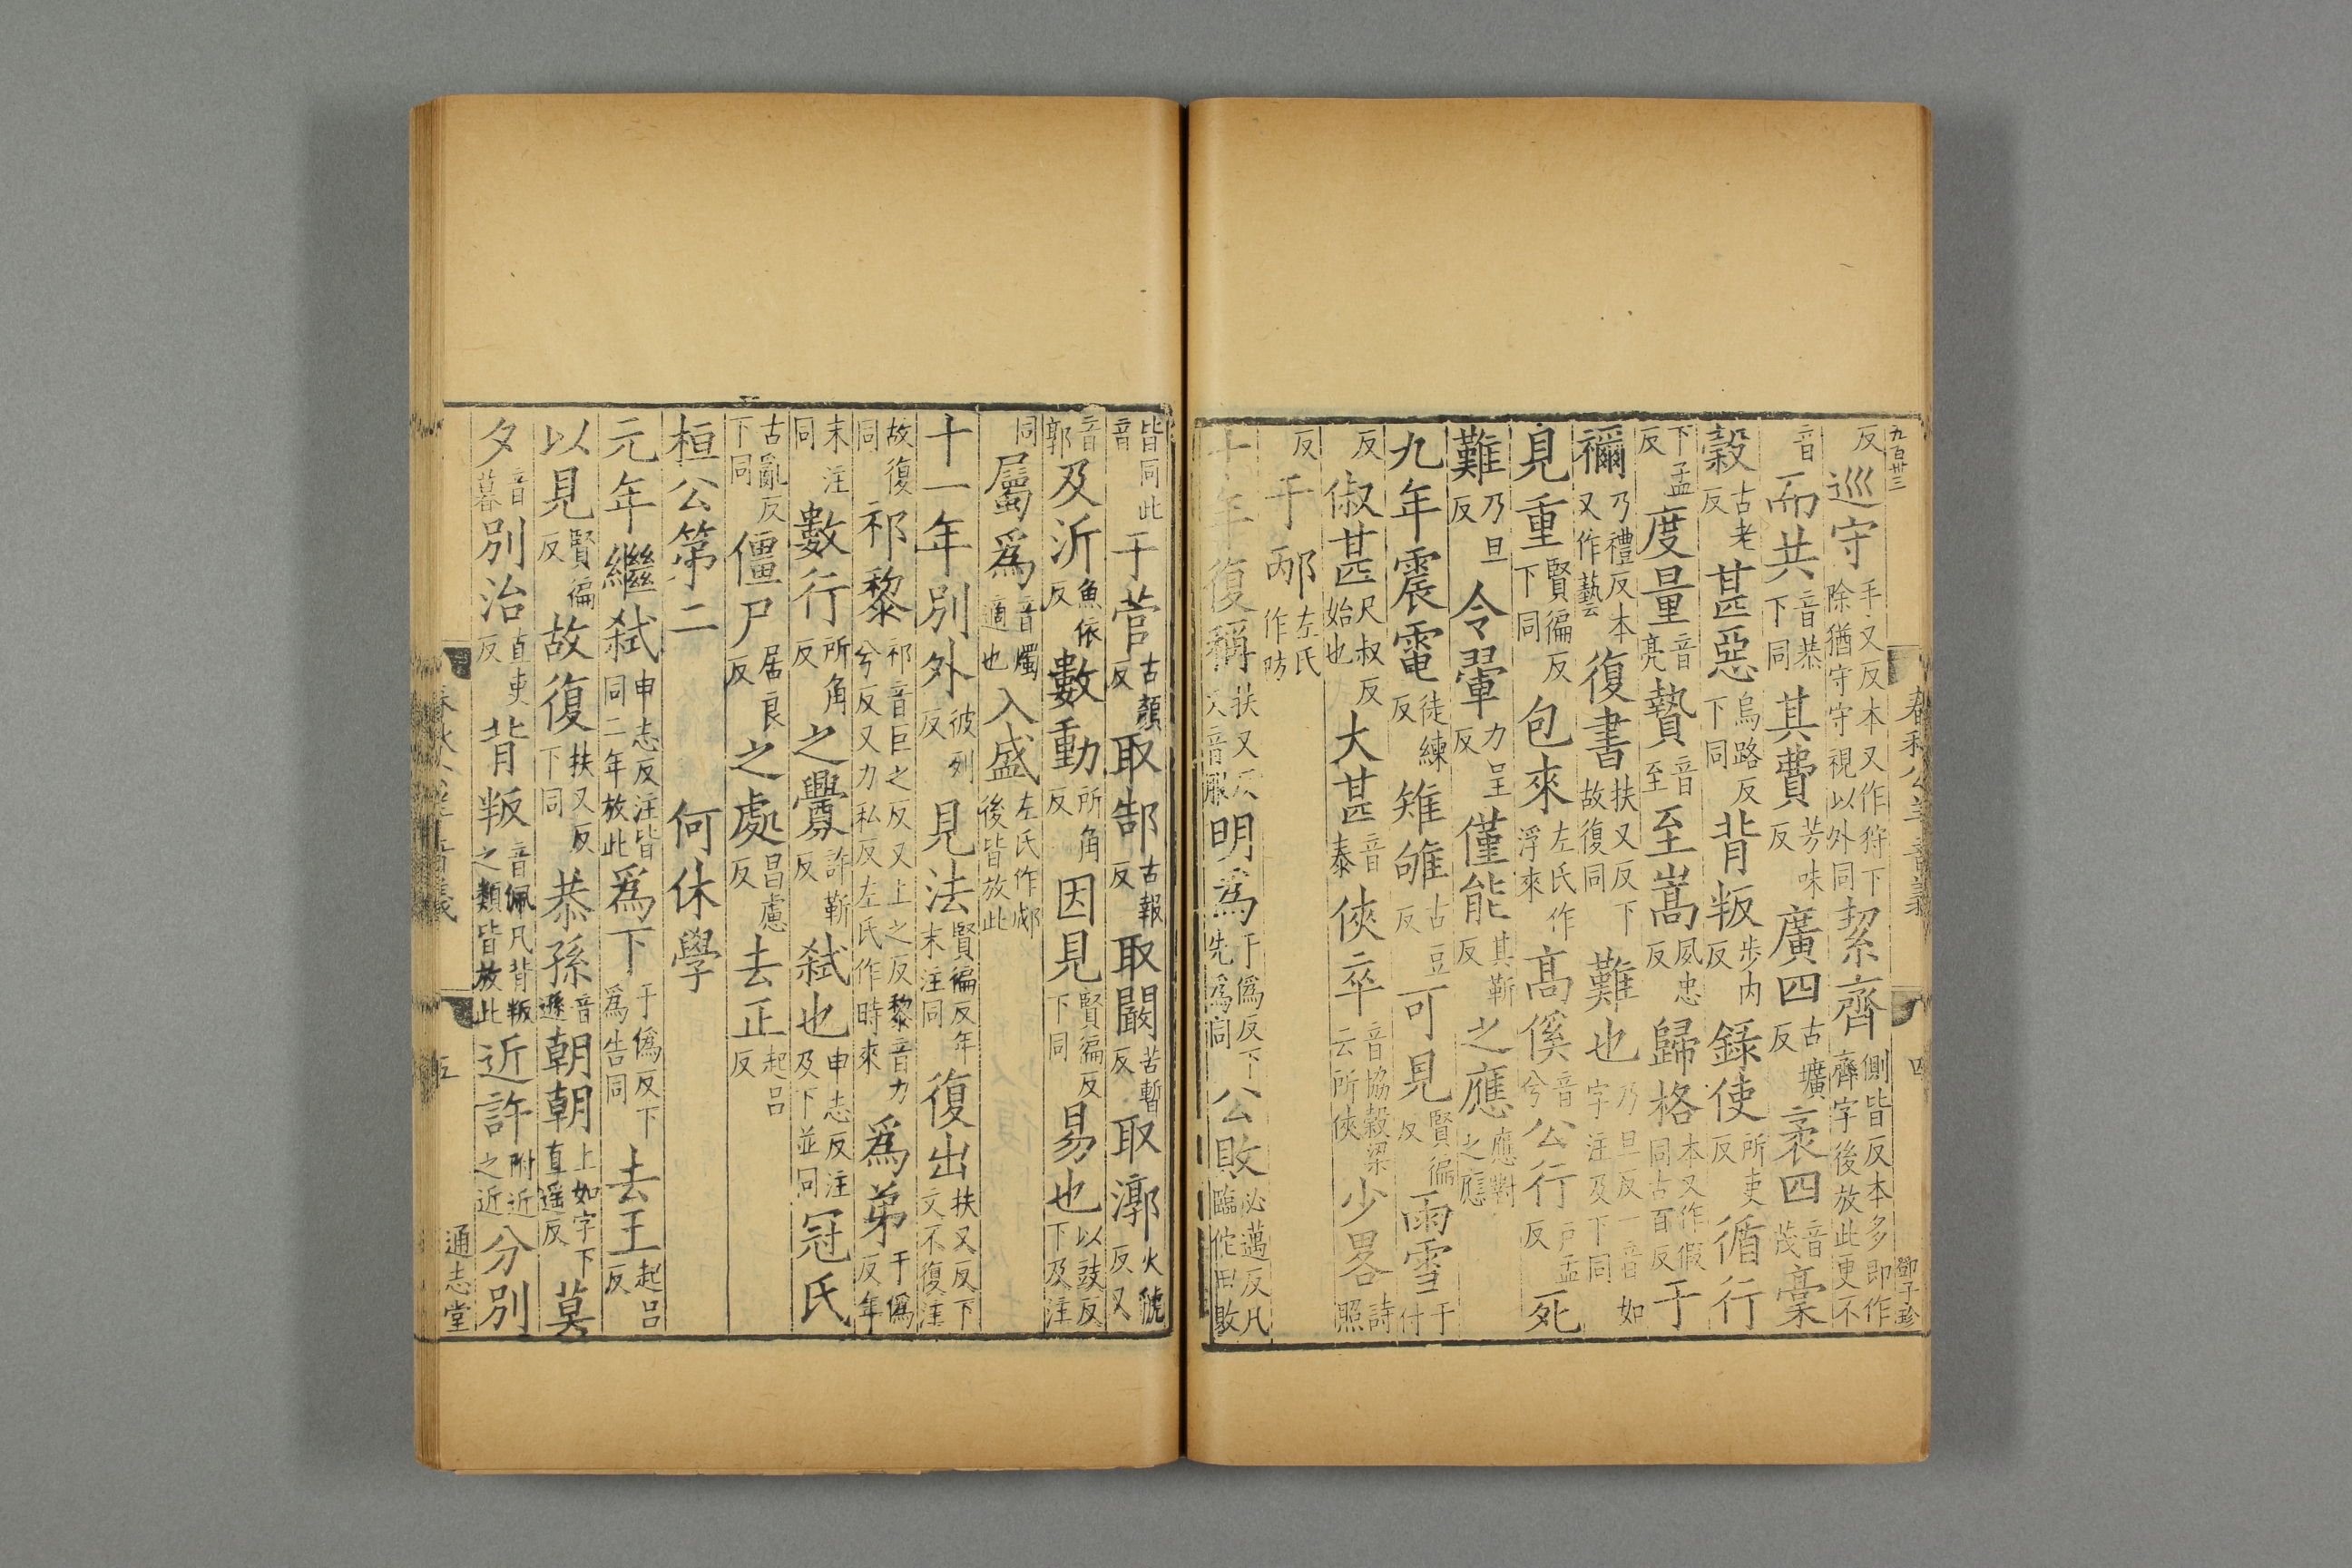 九百卅三
春秋公羊音義
四
鄧子珍
反巡守手又反本又作狩下除猶守守視以外同絜齊側皆反本多即作齊字後放此更不
音而共音恭下同其費芳味反廣四古壙反袤四音茂稾
穀古老反甚惡烏路反下同背叛步内反録使所吏反循行
下孟反度量音亮贄音至至嵩夙忠反歸格本又作假同古百反于
禰乃禮反本又作藝復書扶又反下故復同難也乃旦反一音如字注及下同
見重賢徧反下同包來左氏作浮來高傒音兮公行户孟反死
難乃旦反令翬力呈反僅能其靳反之應應對之應
九年震電徒練反雉雊古豆反可見賢徧反雨雪于付
反俶甚尺叔反始也大甚音泰俠卒音協穀梁云所俠少畧詩照
反于邴左氏作防
十年復稱扶又反又音服明爲于僞反下先爲同公敗必邁反凡臨佗曰敗
皆同此音于菅古顏反取郜古報反取闞苦暫反取漷火虢反又
音郭及沂魚依反數動所角反因見賢徧反下同易也以豉反下及注
同屬爲音燭適也入盛左氏作郕後皆放此
十一年別外彼列反見法賢徧反年末注同復出扶又反下文不復注
故復同祁黎祁音巨之反又上之反黎音力兮反又力私反左氏作時來爲弟于僞反年
末注同數行所角反之釁許靳反弑也申志反注及下並同冠氏
古亂反下同僵尸居良反之處昌慮反去正起呂反
桓公第二　何休學
元年繼弑申志反注皆同二年放此爲下于僞反下爲告同去王起呂反
以見賢徧反故復扶又反下同恭孫音遜朝朝上如字下直遥反莫
夕音暮別治直吏反背叛音佩凡背叛之類皆放此近許附近之近分別
五
通志堂